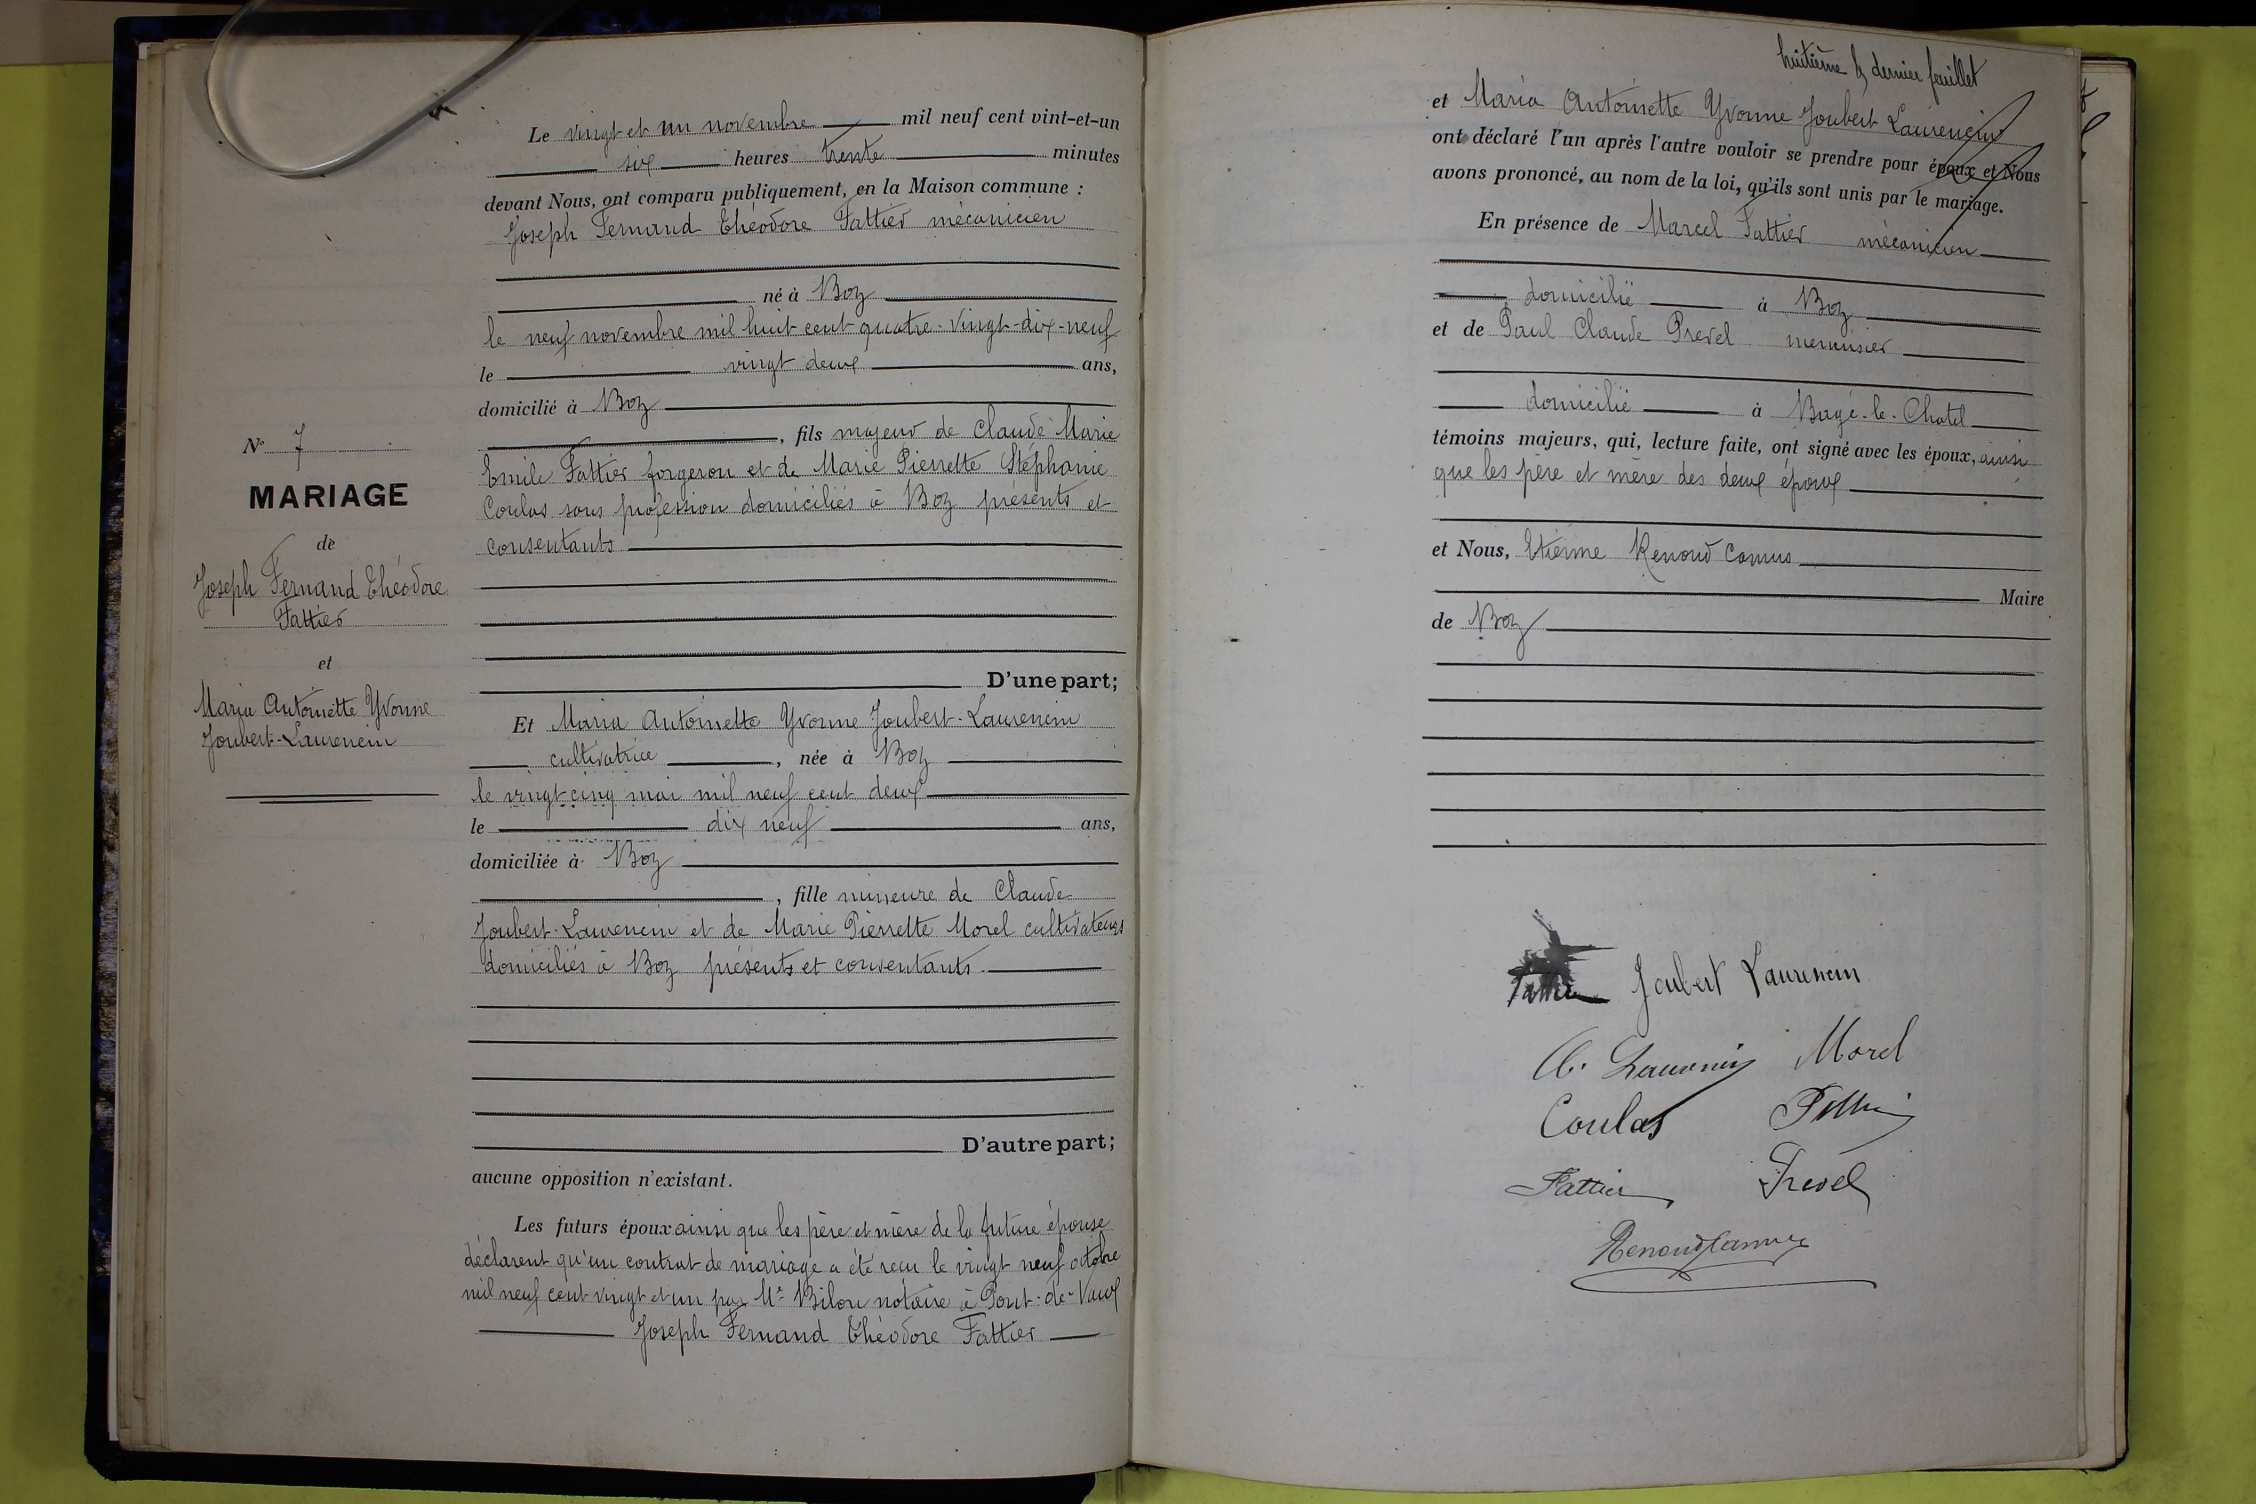 Le vingt et un novembre mil neuf cent vint-et-un
six heures trente minutes
devant Nous, ont comparu publiquement, en la Maison commune :
Joseph Fernand Théodore Fattier mécanicien
né à Boz
le neuf novembre mil huit cent quatre-vingt-dix-neuf
le vingt deux ans,
domicilié à Boz
, fils majeur de Claude Marie
Emile Fattier forgeron et de Marie Pierrette Stéphanie
Coulas sans profession domiciliés à Boz présents et
consentants
D'une part;
Et Maria Antoinette Yvonne Joubert-Laurencin
cultivatrice, née à Boz
le vingt cinq mai mil neuf cent deux
le dix neuf ans,
domiciliée à Boz
, fille mineure de Claude
Joubert-Laurencin et de Marie Pierrette Morel cultivateurs
domiciliés à Boz présents et consentants
D'autre part;
aucune opposition n'existant.
Les futurs époux ainsi que les père et mère de la future épouse
déclarent qu'un contrat de mariage a été reçu le vingt neuf octobre
mil neuf cent vingt et un par Me Bilon notaire à Pont-de-Vaux
Joseph Fernand Théodore Fattier
No 7
MARIAGE
de
Joseph Fernand Théodore
Fattier
et
Maria Antoinette Yvonne
Joubert-Laurencin
huitième & dernier feuillet
et Maria Antoinette Yvonne Joubert Laurencin
ont déclaré l'un après l'autre vouloir se prendre pour époux et Nous
avons prononcé, au nom de la loi, qu'ils sont unis par le mariage.
En présence de Marcel Fattier mécanicien
domicilié à Boz
et de Paul Claude Prevel menuisier
domicilié à Bagé-le-Chatel
témoins majeurs, qui, lecture faite, ont signé avec les époux, ainsi
que les père et mère des deux époux
et Nous, Etienne Renoud Camus
Maire
de Boz
Fattier Joubert Laurencin
Morel
Coulas
Fattier Prevel
Renoud Camus